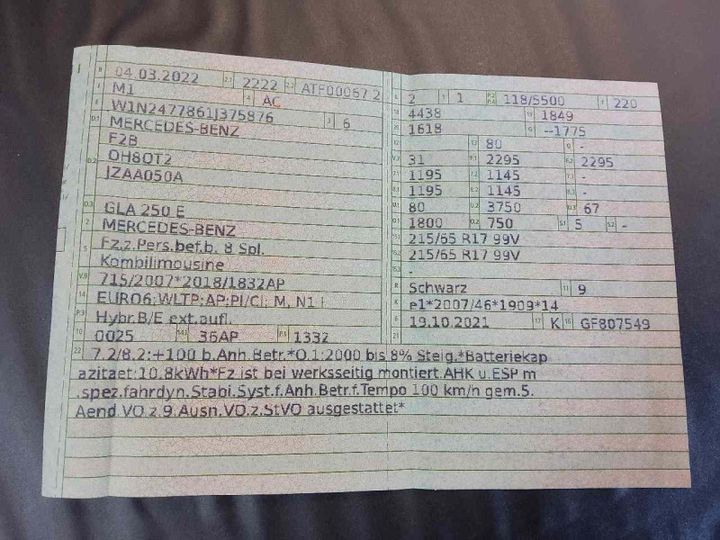 B 04.03.2022 2.1 2222 2.2 ATF00067 2
J M1 4 AC
E W1N2477861J375876 3 6
D.1 MERCEDES-BENZ
F2B
D.2 OH8OT2
JZAA050A
D.3 GLA 250 E
2 MERCEDES-BENZ
5 Fz.z.Pers.bef.b. 8 Spl.
Kombilimousine
V.9 715/2007*2018/1832AP
14 EURO6;WLTP;AP;PI/CI; M, N1 I
P.3 Hybr.B/E ext.aufl.
10 0025 14.1 36AP P.1 1332
L 2 9 1 P.2 P.4 118/5500 T 220
18 4438 19 1849
20 1618 G --1775
12 - 13 80 Q -
V.7 31 F.1 2295 F.2 2295
7.1 1195 7.2 1145 7.3 -
8.1 1195 8.2 1145 8.3 -
U.1 80 U.2 3750 U.3 67
O.1 1800 O.2 750 S.1 5 S.2 -
15.1 215/65 R17 99V
15.2 215/65 R17 99V
15.3 -
R Schwarz 11 9
K e1*2007/46*1909*14
6 19.10.2021 17 K 16 GF807549
21
22 7.2/8.2:+100 b.Anh.Betr.*O.1:2000 bis 8% Steig.*Batteriekap
azitaet:10,8kWh*Fz.ist bei werksseitig montiert.AHK u.ESP m
.spez.fahrdyn.Stabi.Syst.f.Anh.Betr.f.Tempo 100 km/h gem.5.
Aend.VO.z.9.Ausn.VO.z.StVO ausgestattet*